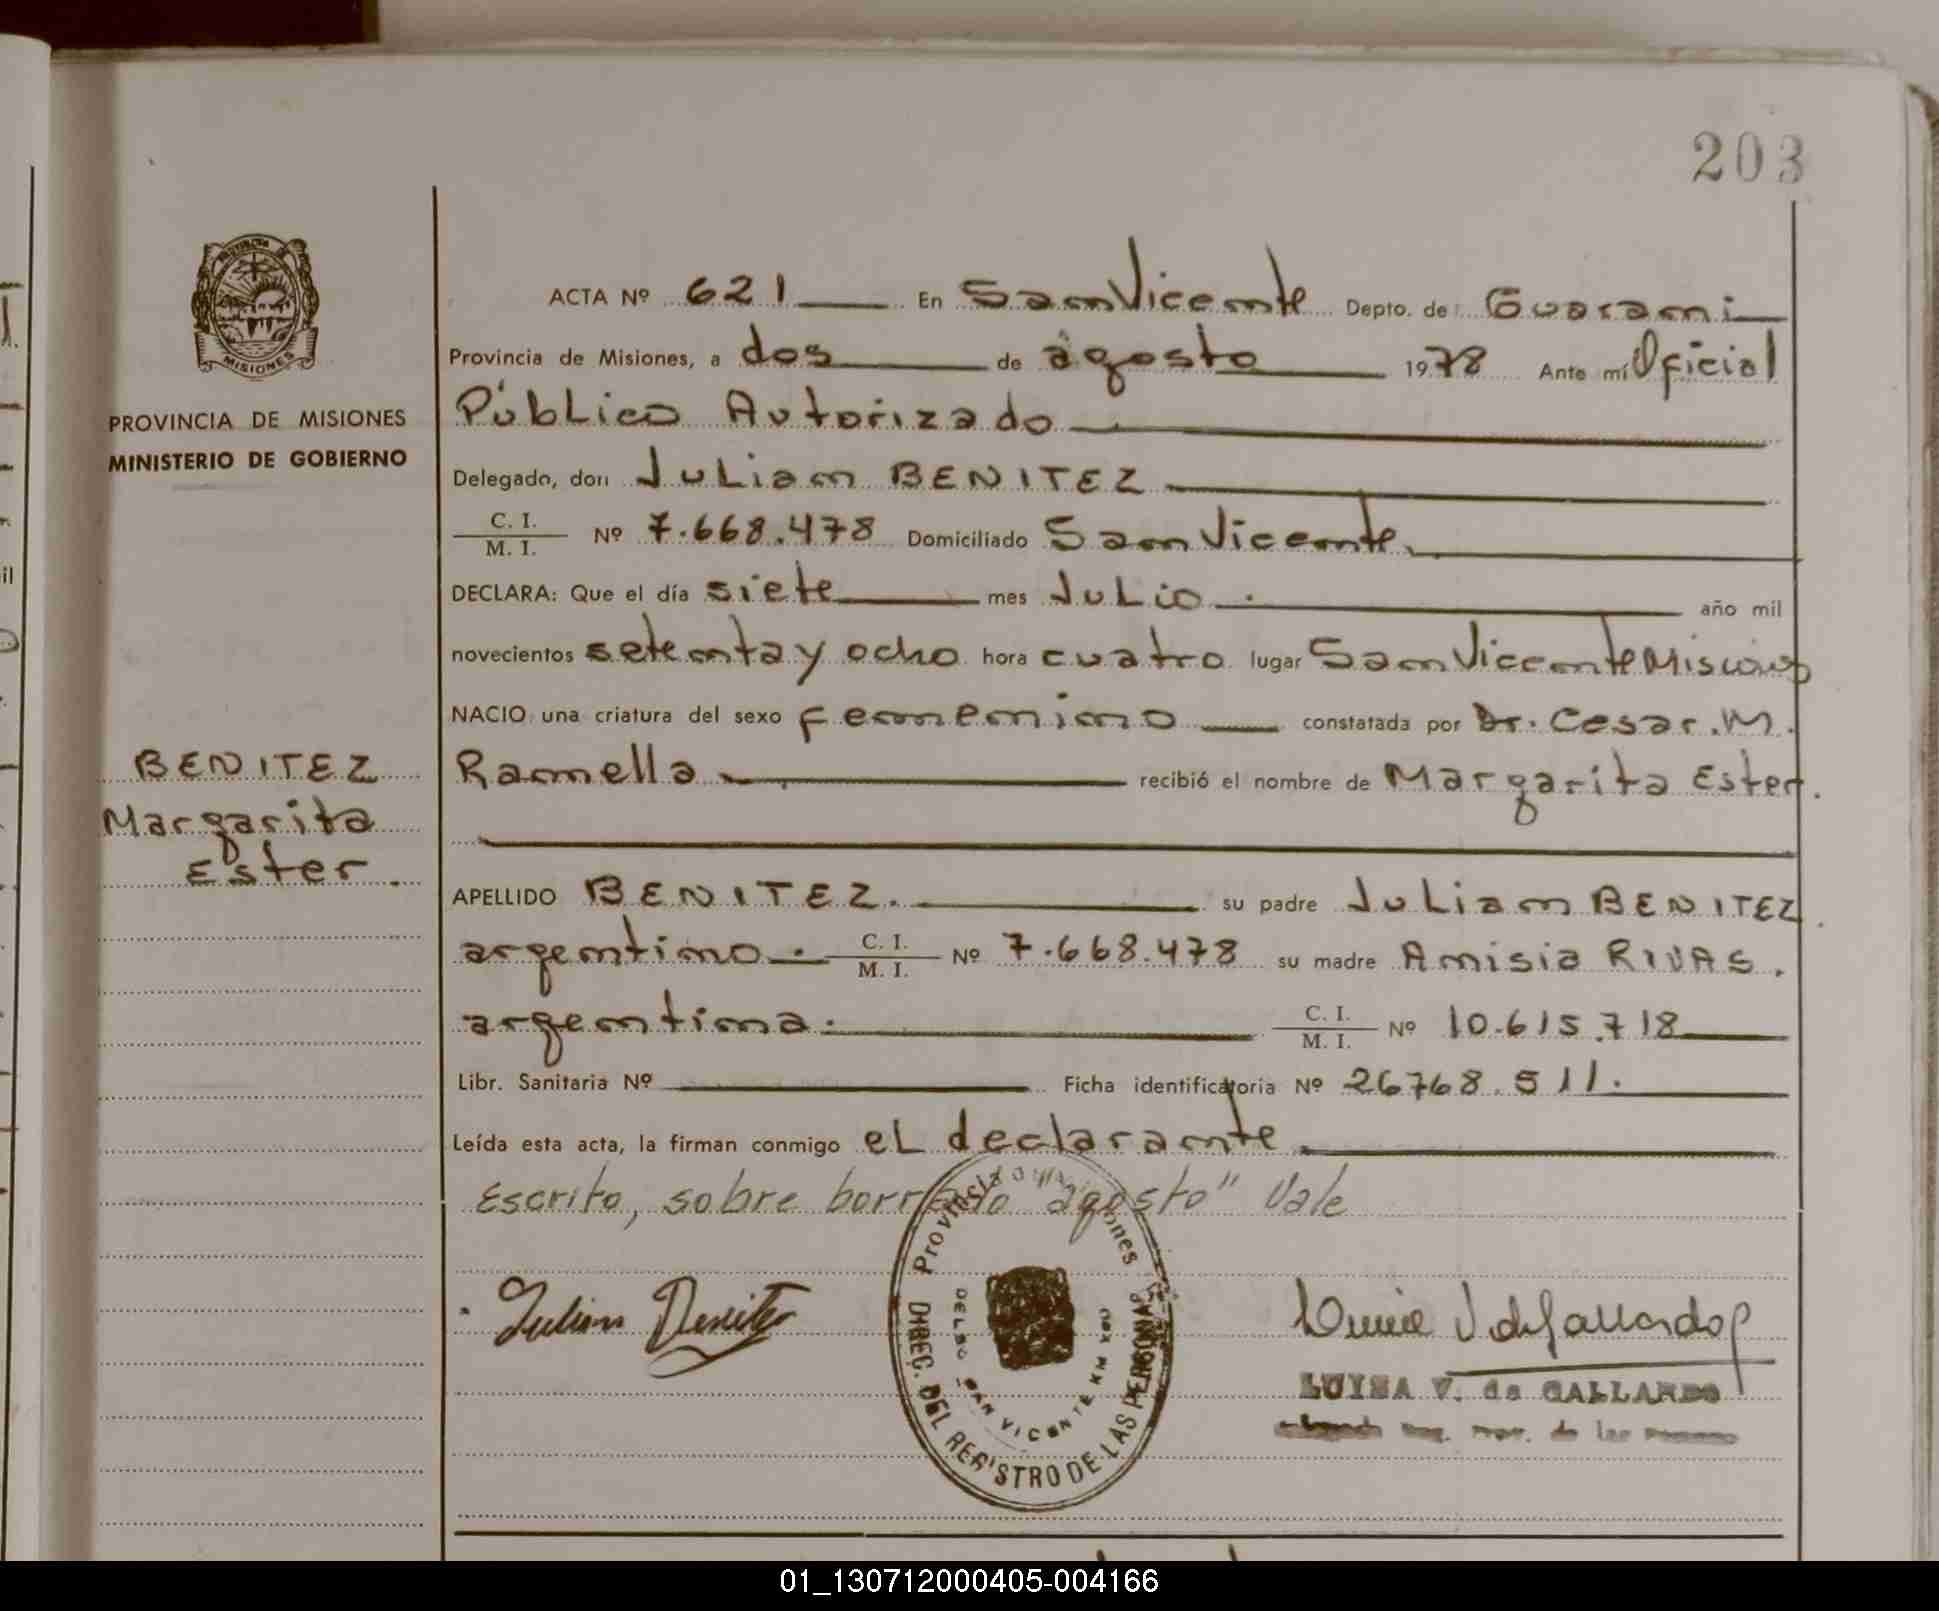 203
ACTA Nº 621 En San Vicente Depto. de Guarani
Provincia de Misiones, a dos de agosto 1978 Ante mí Oficial
Público Autorizado
Delegado, don Julian BENITEZ
C. I.
M. I. Nº 7.668.478 Domiciliado San Vicente
DECLARA: Que el día siete mes Julio. año mil
novecientos setenta y ocho hora cuatro lugar San Vicente Misiones
NACIO una criatura del sexo femenino constatada por Dr. Cesar. M.
Ramella recibió el nombre de Margarita Ester.
APELLIDO BENITEZ. su padre Julian BENITEZ.
argentino. C. I.
M. I. Nº 7.668.478 su madre Amisia RIVAS.
argentina. C. I.
M. I. Nº 10.615.718
Libr. Sanitaria Nº Ficha identificatoria Nº 26768.511.
Leída esta acta, la firman conmigo el declarante.
Escrito, sobre borrado "agosto" Vale
Julian Benitez
LUISA V. de GALLARDO
Provincia Misiones
DIREC. DEL REGISTRO DE LAS PERSONAS
SAN VICENTE KM
MISIONES
PROVINCIA DE MISIONES
MINISTERIO DE GOBIERNO
BENITEZ
Margarita
Ester.
01_130712000405-004166